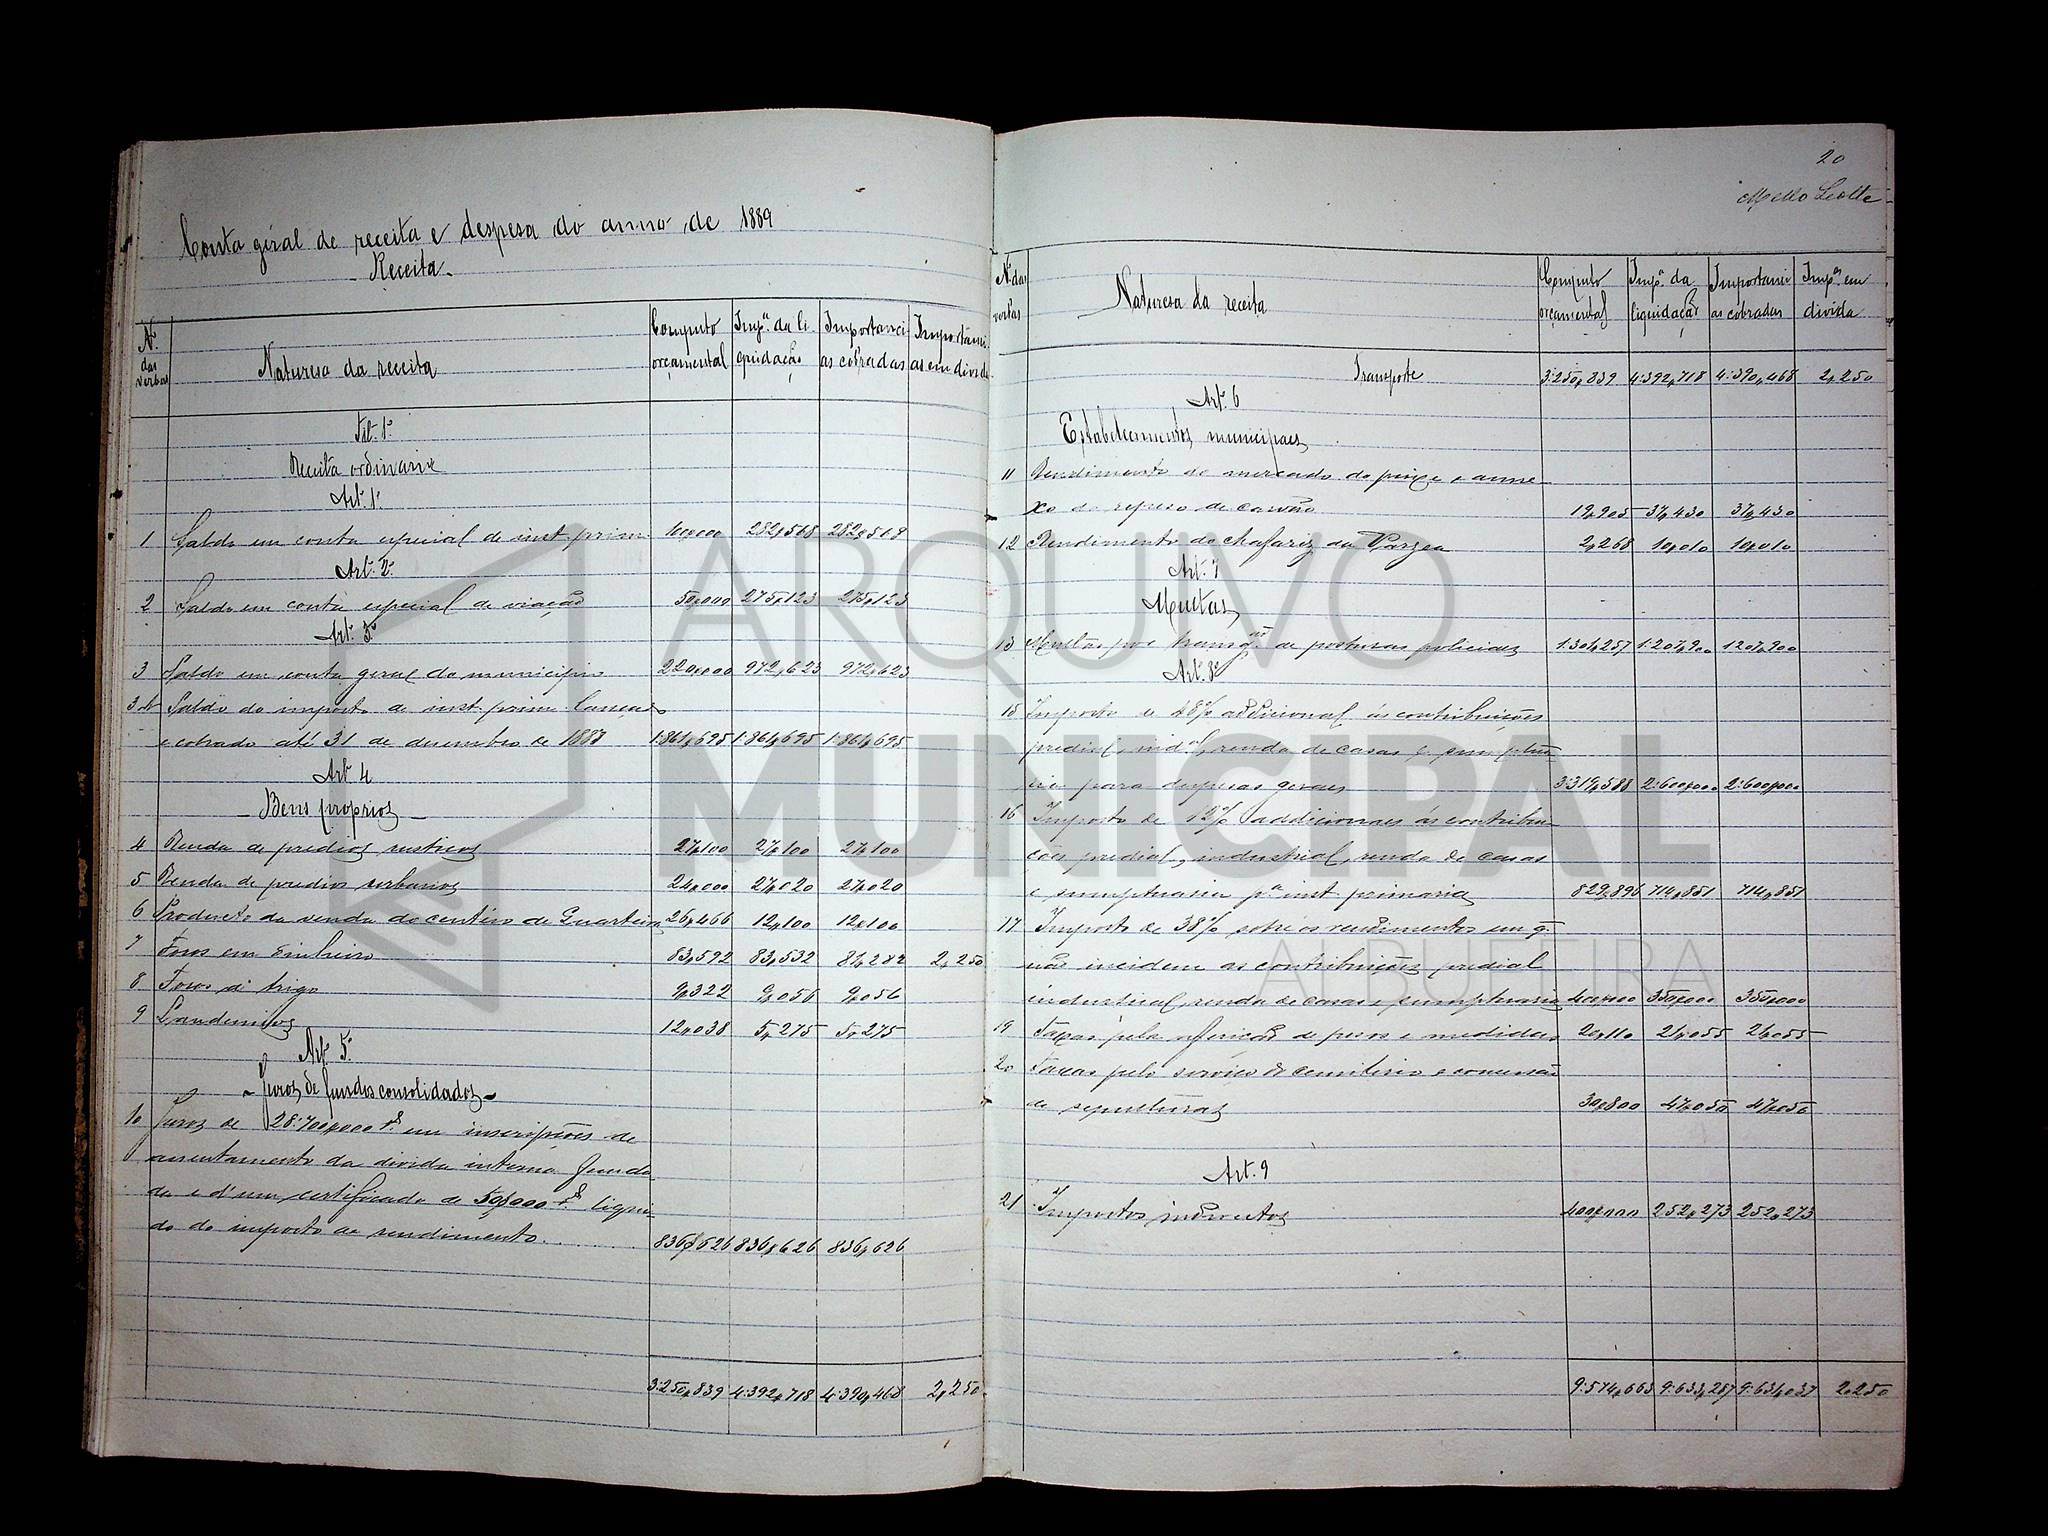 Conta geral de receita e despesa do anno de 1889
- Receita -
Nº das verbas Naturesa da receita Computo orçamental Impª da liquidação Importancias cobradas Importancias em divida
Tit. 1º
Receita ordinaria
Art. 1º
1 Saldo em conta especial de inst. prim. 100,000 282,508 282,508
Art. 2º
2 Saldo em conta especial de viação 50,000 275,123 275,123
Art. 3º
3 Saldo em conta geral do municipio 220,000 972,623 972,623
Saldo do imposto de inst. prim. lançado
e cobrado até 31 de desembro de 1888 1:861,695 1:861,695 1:861,695
Art. 4
- Bens proprios -
4 Renda de predios rusticos 27,100 27,100 27,100
5 Renda de predios urbanos 24,000 27,020 27,020
6 Producto da venda do centeio de Quarteira 26,466 12,100 12,100
7 Foros em dinheiro 83,592 83,532 81,282 2,250
8 Foros de trigo 9,322 9,056 9,056
9 Laudemios 12,038 5,275 5,275
Art. 5º
- Juros de fundos consolidados -
10 Juros de 28:700,000 rs em inscripções de
assentamento da divida interna funda
da e d'um certificado de 50,000 rs liqui-
do do imposto de rendimento 836,626 836,626 836,626
3:250,839 4:392,718 4:390,468 2,250
20
Mello Leotte
Nº das verbas Naturesa da receita Computo orçamental Impª da liquidação Importancias cobradas Impªs em divida
Transporte 3:250,839 4:392,718 4:390,468 2,250
Art. 6
Estabelecimentos municipaes
11 Rendimento do mercado do peixe e anne-
xo do repeso de carvão 19,905 37,430 37,430
12 Rendimento do chafariz da Varzea 2,268 10,010 10,010
Art. 7
Multas
13 Multas por transg.es de posturas policiaes 1:301,257 1:207,900 1207,900
Art. 8º
15 Imposto de 48% addicional ás contribuições
predial, ind.al, renda de casas e sumptua-
ria para despesas geraes 3:319,588 2:600,000 2:600,000
16 Imposto de 12% addicionaes ás contribui-
ções predial, industrial, renda de casas
e sumptuaria pª inst. primaria 829,896 714,851 714,851
17 Imposto de 38% sobre os rendimentos em q.
não incidem as contribuições predial
industrial, renda de casas e sumptuaria 400,000 350,000 350,000
19 Taxas pela aferição de pesos e medidas 20,110 21,055 21,055
20 Taxas pelo serviço do cemiterio e concessão
de sepulturas 30,800 47,050 47,050
Art. 9
21 Impostos indirectos 400,000 252,273 252,273
9:574,663 9:633,287 9:631,037 2,250
ARQUIVO
MUNICIPAL
ALBUFEIRA